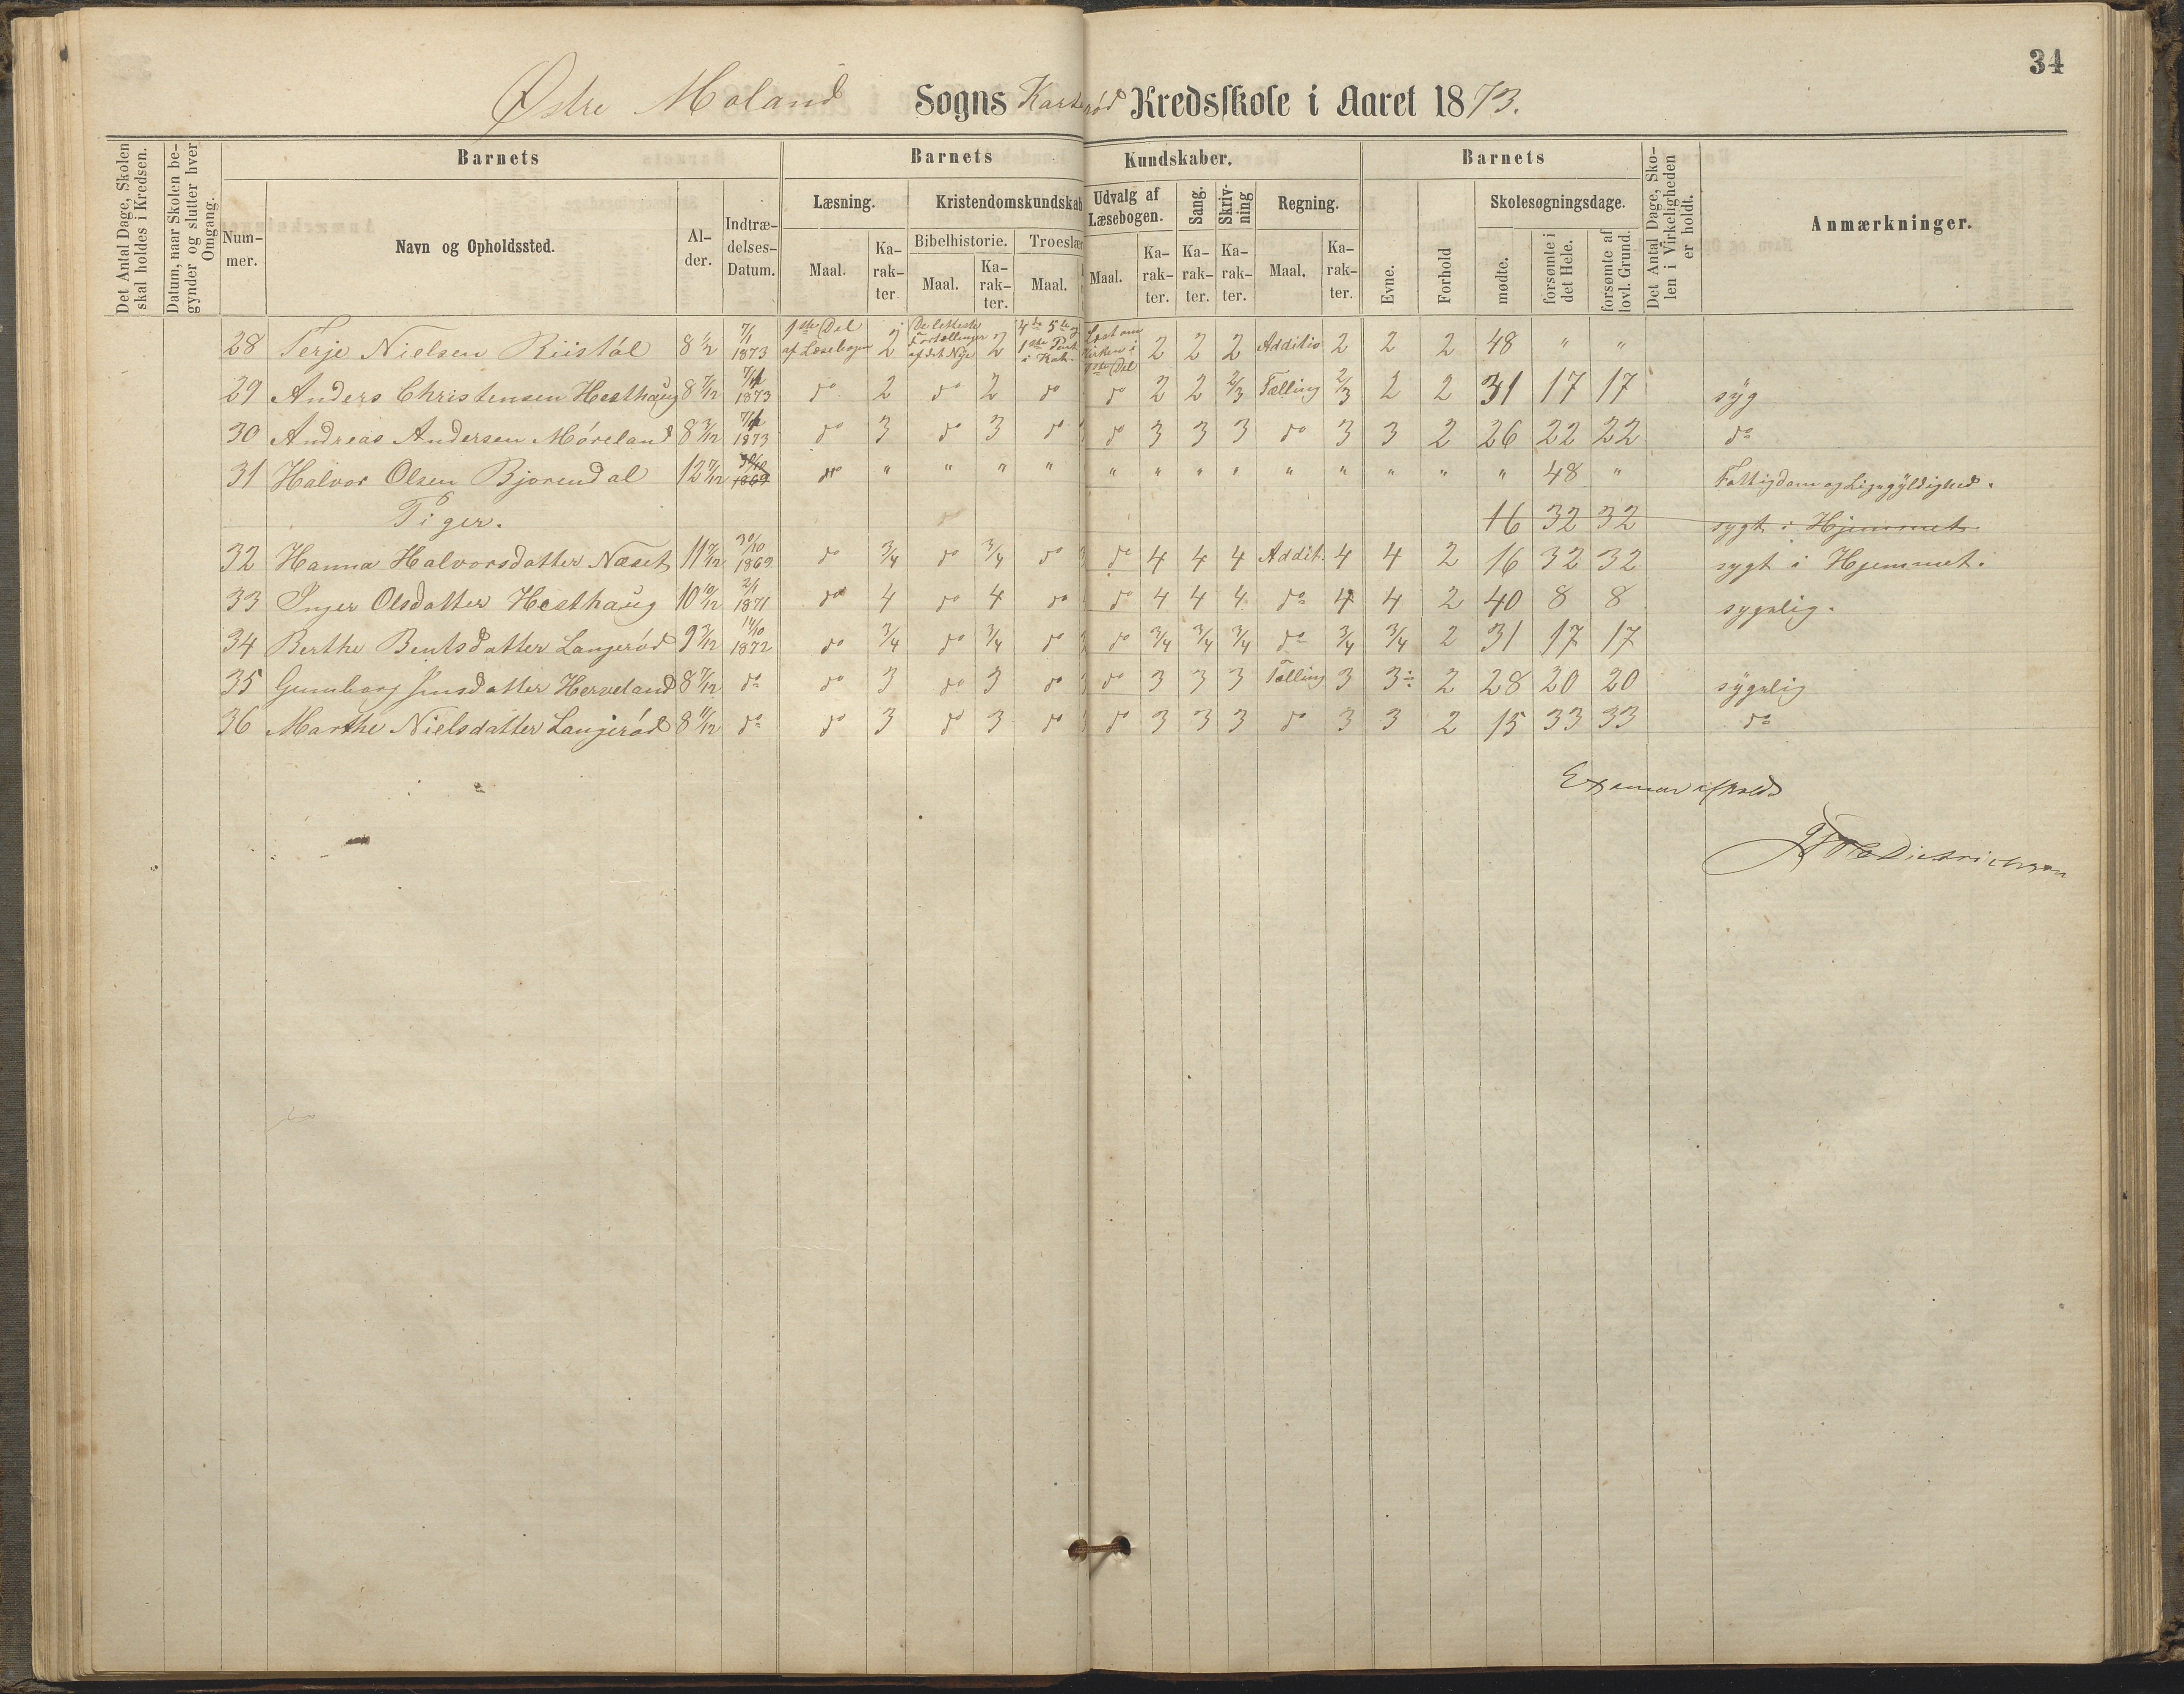 34
Østre Moland Sogns Kredsskole i Aaret 1873.
Det Antal Dage, Skolen skal holdes i Kredsen.
Datum, naar Skolen begynder og slutter hver Omgang.
Barnets
Barnets Kundskaber.
Barnets
Det Antal Dage, Skolen i Virkeligheden er holdt.
Anmærkninger.
Nummer.
Navn og Opholdssted.
Alder.
Indtrædelses-Datum.
Læsning.
Kristendomskundskab
Udvalg af Læsebogen.
Sang.
Skrivning
Regning.
Evne.
Forhold
Skolesøgningsdage.
Maal.
Karakter
Bibelhistorie.
Troeslær
Maal.
Karakter.
Maal.
Maal.
Karakter.
Karakter.
Karakter.
Maal.
Karakter.
mødte.
forsømte i det Hele.
forsømte af lovl. Grund.
28 Terje Nielsen Riistøl 8 1/2 7/1 1873 1ste Del af Læsebogen 2 De letteste Fortællinger af det Nye 2 4de 5te og 1ste Part i Kat. Læst om Kirken i 1ste Del 2 2 2 Additio 2 2 2 48 " "
29 Anders Christensen Hesthaug 8 7/12 7/1 1873 do 2 do 2 do do 2 2 2/3 Tælling 2/3 2 2 31 17 17 syg
30 Andreas Andersen Møreland 8 3/12 7/1 1873 do 3 do 3 do do 3 3 3 do 3 3 2 26 22 22 do
31 Halvor Olsen Bjorendal 12 7/12 30/10 1869 do " " " " " " " " " " " " " 48 " Fattigdom og Ligegyldighed.
Piger. 16 32 32 sygt i Hjemmet
32 Hanna Halvorsdatter Næset 11 7/12 30/10 1869 do 3/4 do 3/4 do do 4 4 4 Addit. 4 4 2 16 32 32 sygt i Hjemmet.
33 Inger Olsdatter Hesthaug 10 10/12 2/1 1871 do 4 do 4 do do 4 4 4 do 4 4 2 40 8 8 sygelig.
34 Berthe Bentsdatter Langerød 9 3/12 14/10 1872 do 3/4 do 3/4 do do 3/4 3/4 3/4 do 3/4 3/4 2 31 17 17
35 Gunnborg Jensdatter Herveland 8 7/12 do do 3 do 3 do do 3 3 3 Tælling 3 3÷ 2 28 20 20 sygelig
36 Marthe Nielsdatter Langerød 8 11/12 do do 3 do 3 do do 3 3 3 do 3 3 2 15 33 33 do
Examen afholdt
Dietrichson